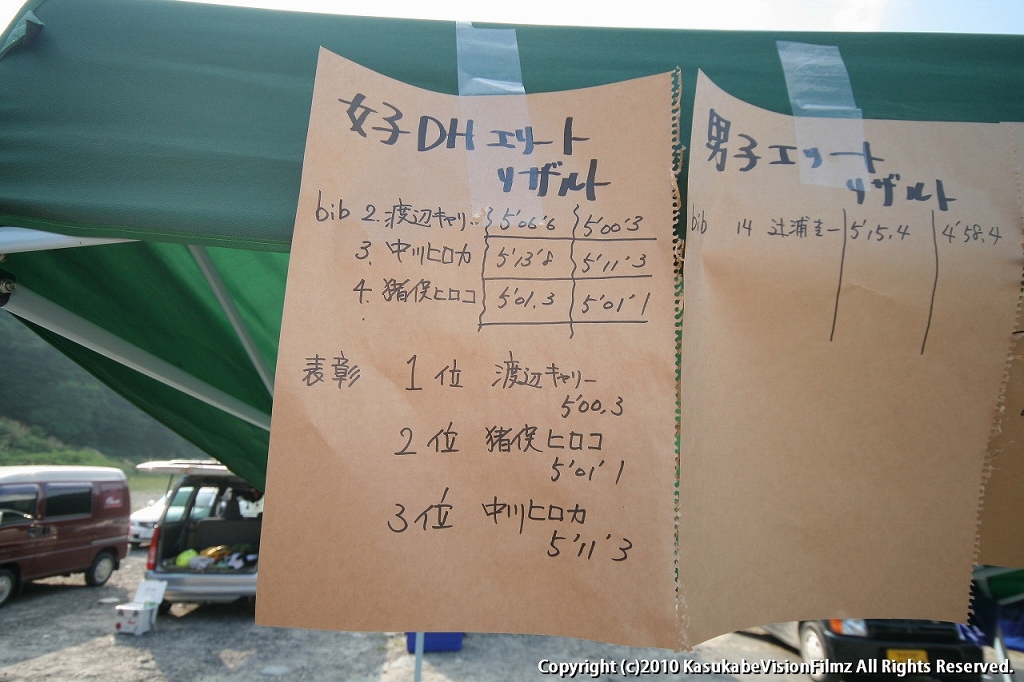 女子DHエリート
リザルト
bib 2. 渡辺キャリー 5'06'6 5'00'3
3. 中川ヒロカ 5'13'8 5'11'3
4. 猪俣ヒロコ 5'01.3 5'01'1
表彰 1位 渡辺キャリー
5'00.3
2位 猪俣ヒロコ
5'01'1
3位 中川ヒロカ
5'11'3
男子エリート
リザルト
bib 14 辻浦圭一 5'15.4 4'58.4
Copyright (c)2010 KasukabeVisionFilmz All Rights Reserved.